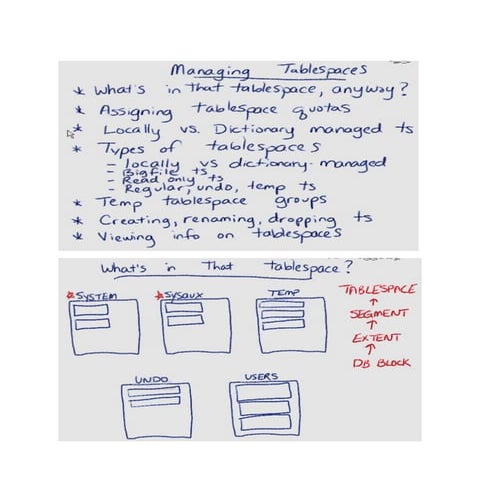 Managing Tablespaces
* What's in that tablespace, anyway?
* Assigning tablespace quotas
* Locally vs. Dictionary managed ts
* Types of tablespaces
- locally vs dictionary-managed
- Bigfile ts
- Read only ts
- Regular, undo, temp ts
* Temp tablespace groups
* Creating, renaming, dropping ts
* Viewing info on tablespaces
What's in That tablespace?
* SYSTEM
* SYSAUX
TEMP
TABLESPACE
↑
SEGMENT
↑
EXTENT
↑
DB BLOCK
UNDO
USERS